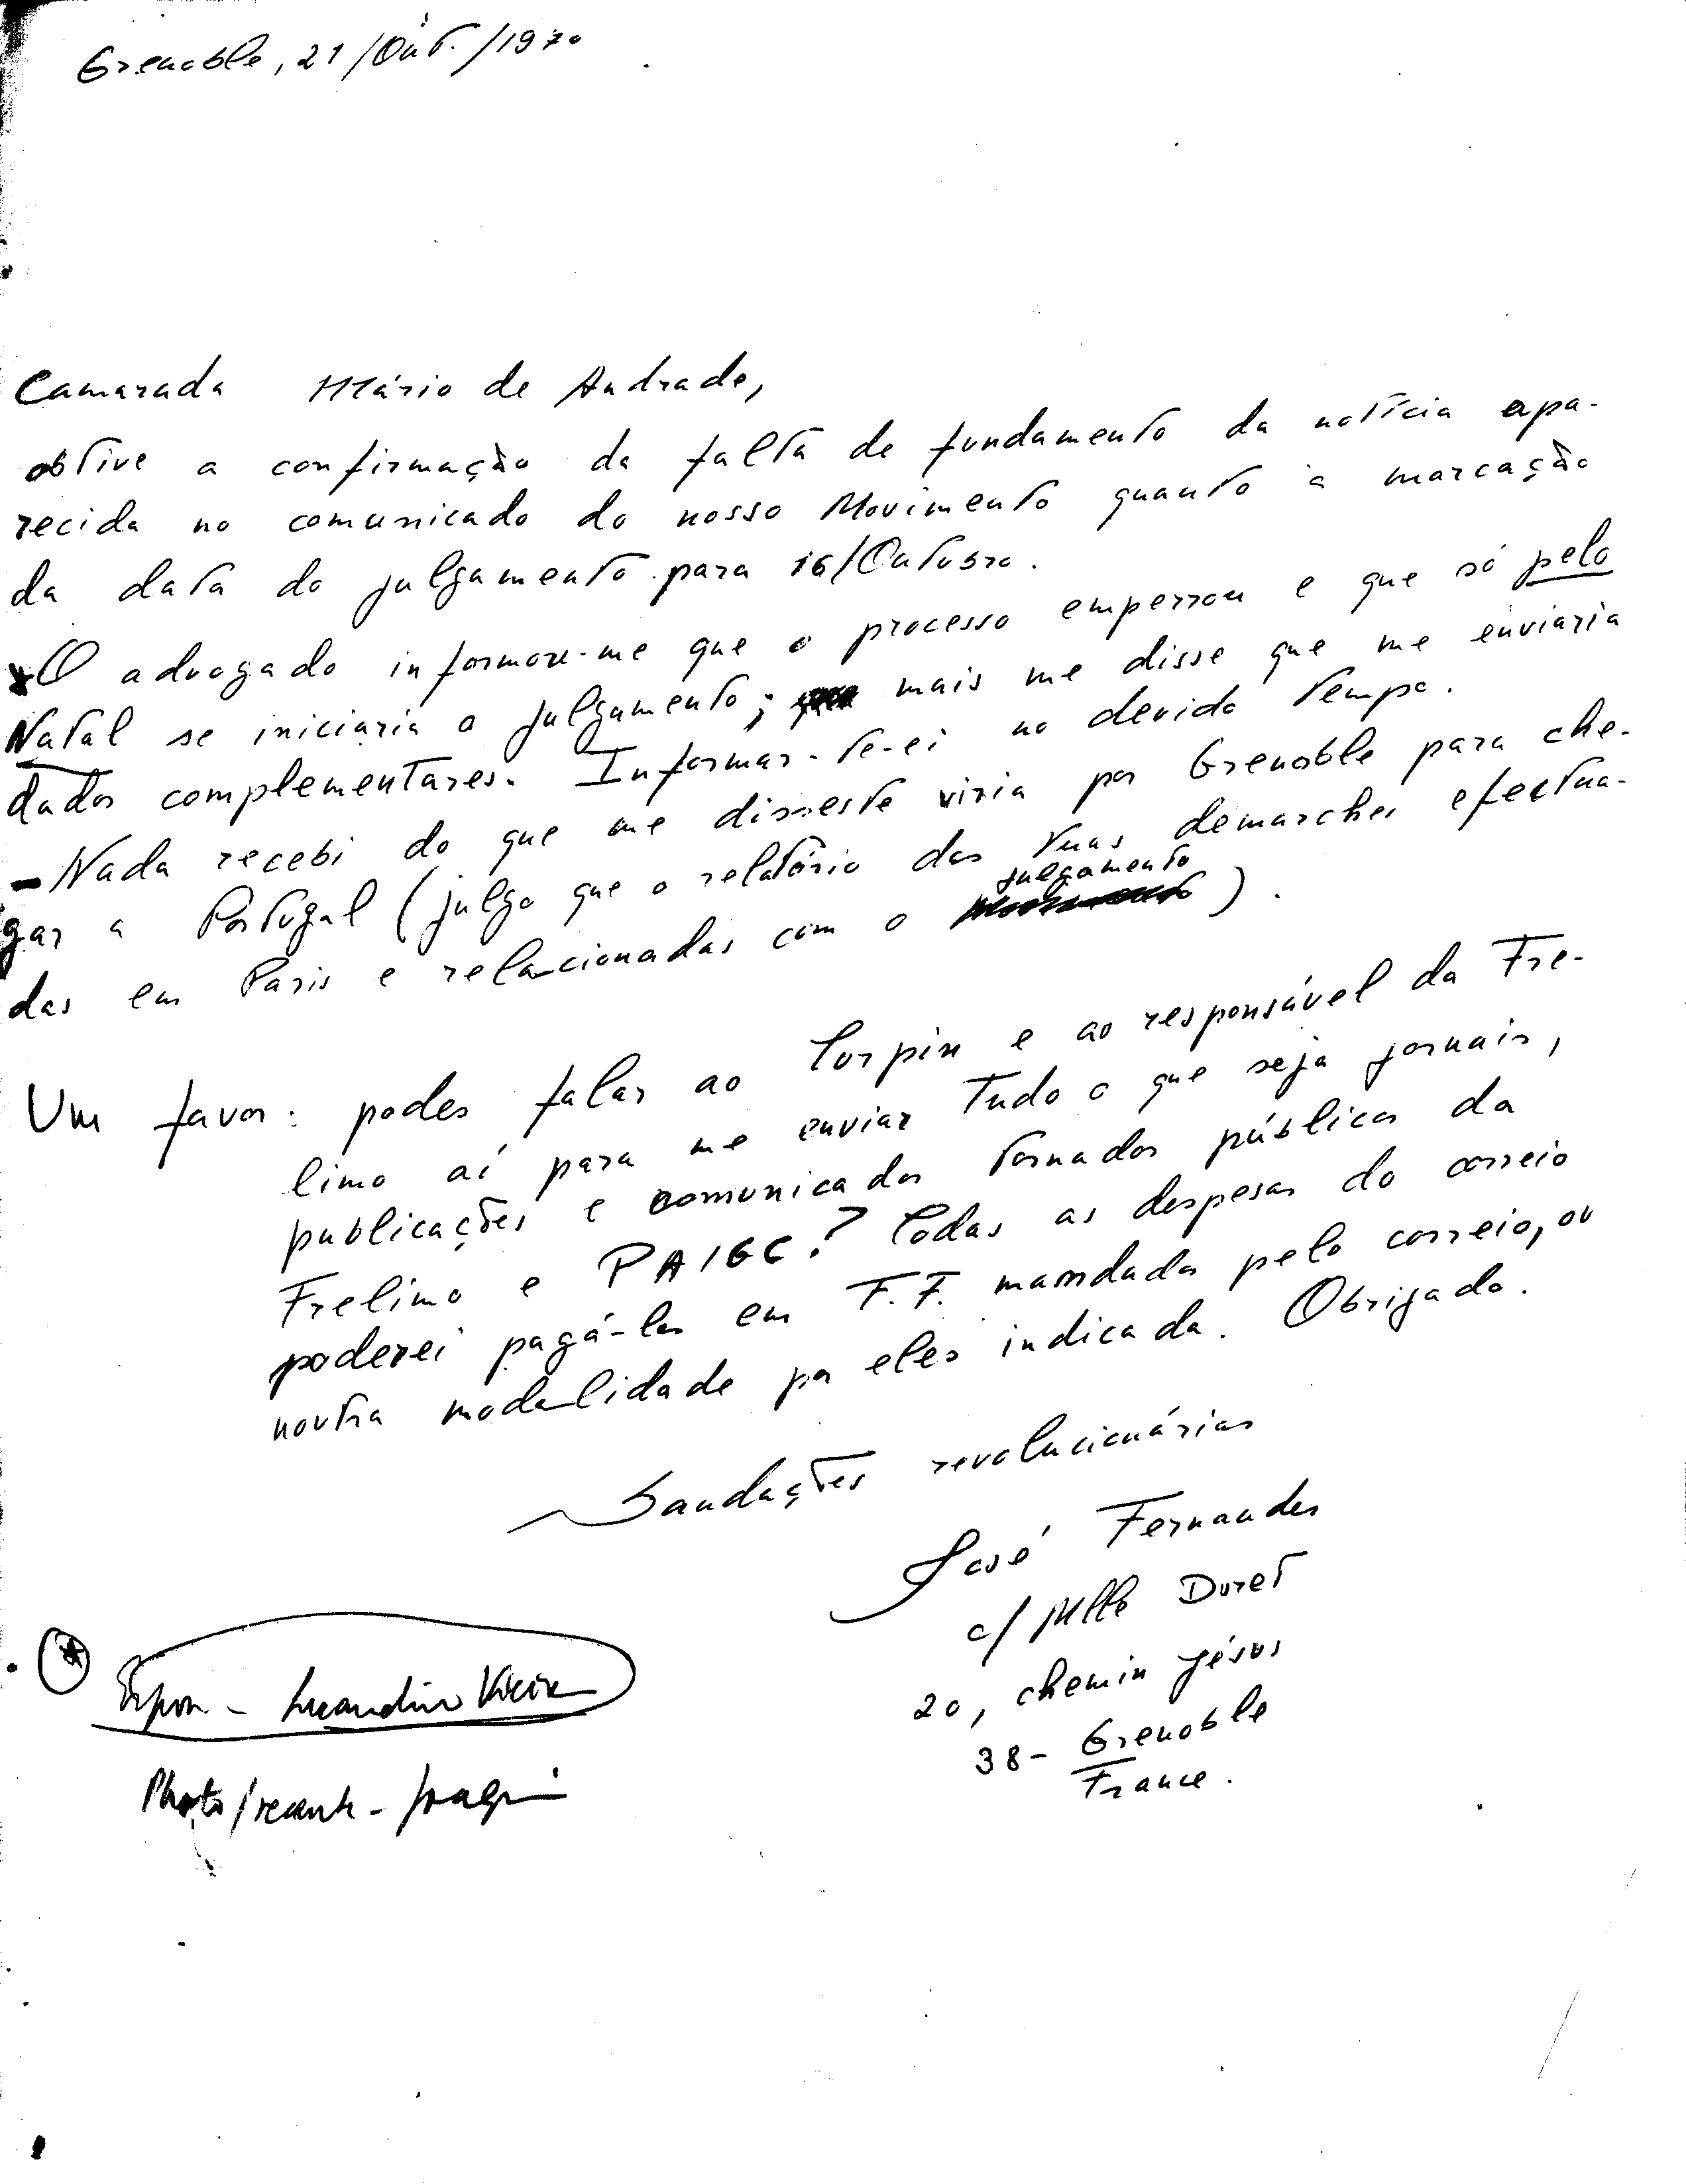 Grenoble, 21/Out./1970
Camarada Mário de Andrade,
obtive a confirmação da falta de fundamento da notícia apa-
recida no comunicado do nosso Movimento quanto à marcação
da data do julgamento para 16/Outubro.
O advogado informou-me que o processo emperrou e que só pelo
Natal se iniciaria o julgamento; mais me disse que me enviaria
dados complementares. Informar-te-ei no devido tempo.
- Nada recebi do que me disseste viria por Grenoble para che-
gar a Portugal (julgo que o relatório das tuas demarches efectua-
das em Paris e relacionadas com o julgamento).
Um favor: podes falar ao Turpin e ao responsável da Fre-
limo aí para me enviar tudo o que seja jornais,
publicações e comunicados tornados públicos da
Frelimo e PAIGC? Todas as despesas do correio
poderei pagá-las em F.F. mandados pelo correio, ou
noutra modalidade por eles indicada. Obrigado.
Saudações revolucionárias
José Fernandes
c/ Mlle Duret
20, chemin Jésus
38- Grenoble
France.
- Luandino Vieira
Photo/récente - Joaquim